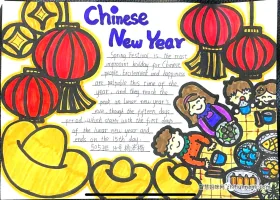 Chinese
New Year
Spring Festival is the most
important holiday for Chinese
people. Excitement and happiness
are palpable this time of the
year, and they reach the
peak on lunar new year's
eve, though the fifteen days
period which starts with the first days
of the lunar new year and
ends on the 15th day.